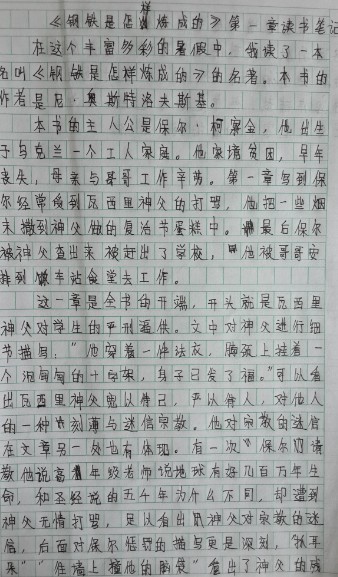 《钢铁是怎样炼成的》第一章读书笔记
在这个丰富多彩的暑假中，我读了一本
名叫《钢铁是怎样炼成的》的名著。本书的
作者是尼·奥斯特洛夫斯基。
本书的主人公是保尔·柯察金，他出生
于乌克兰一个工人家庭。他家境贫困，早年
丧失，母亲与哥哥工作辛劳。第一章写到保
尔经常受到瓦西里神父的打骂，他把一些烟
末撒到神父做的复活节蛋糕中。最后保尔
被神父查出来被赶出了学校，他被哥哥安
排到车站食堂去工作。
这一章是全书的开端，开头就是瓦西里
神父对学生的严刑逼供。文中对神父进行细
节描写：“他穿着一件法衣，胸颈上挂着一
个沉甸甸的十字架，身子已发了福。”可以看
出瓦西里神父宽以待己，严以待人，对他人
的一种刻薄与迷信宗教。他对宗教的迷信
在文章另一处也有体现。有一次保尔请
教他说高年级老师说地球有好几百万年生
命，和圣经说的五千年为什么不同，却遭到
神父无情打骂，足以看出神父对宗教的迷
信，后面对保尔惩罚的描写更是深刻，
”“往墙上撞他的脑袋”看出了神父的